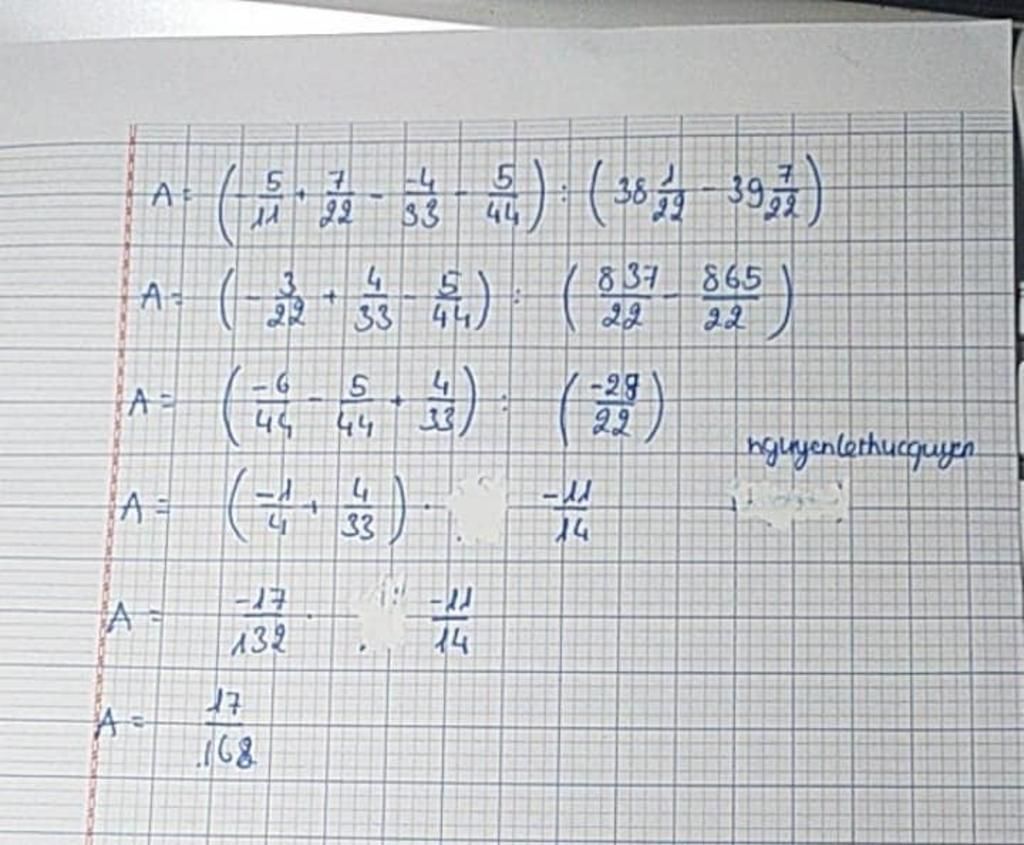 A = (-5/11 + 7/22 - -4/33 - 5/44) : (38 1/22 - 39 7/22)
A = (-3/22 + 4/33 - 5/44) : (837/22 - 865/22)
A = (-6/44 - 5/44 + 4/33) : (-28/22)
nguyenlethucquyen
A = (-1/4 + 4/33) . -11/14
A = -17/132 . -11/14
A = 17/168